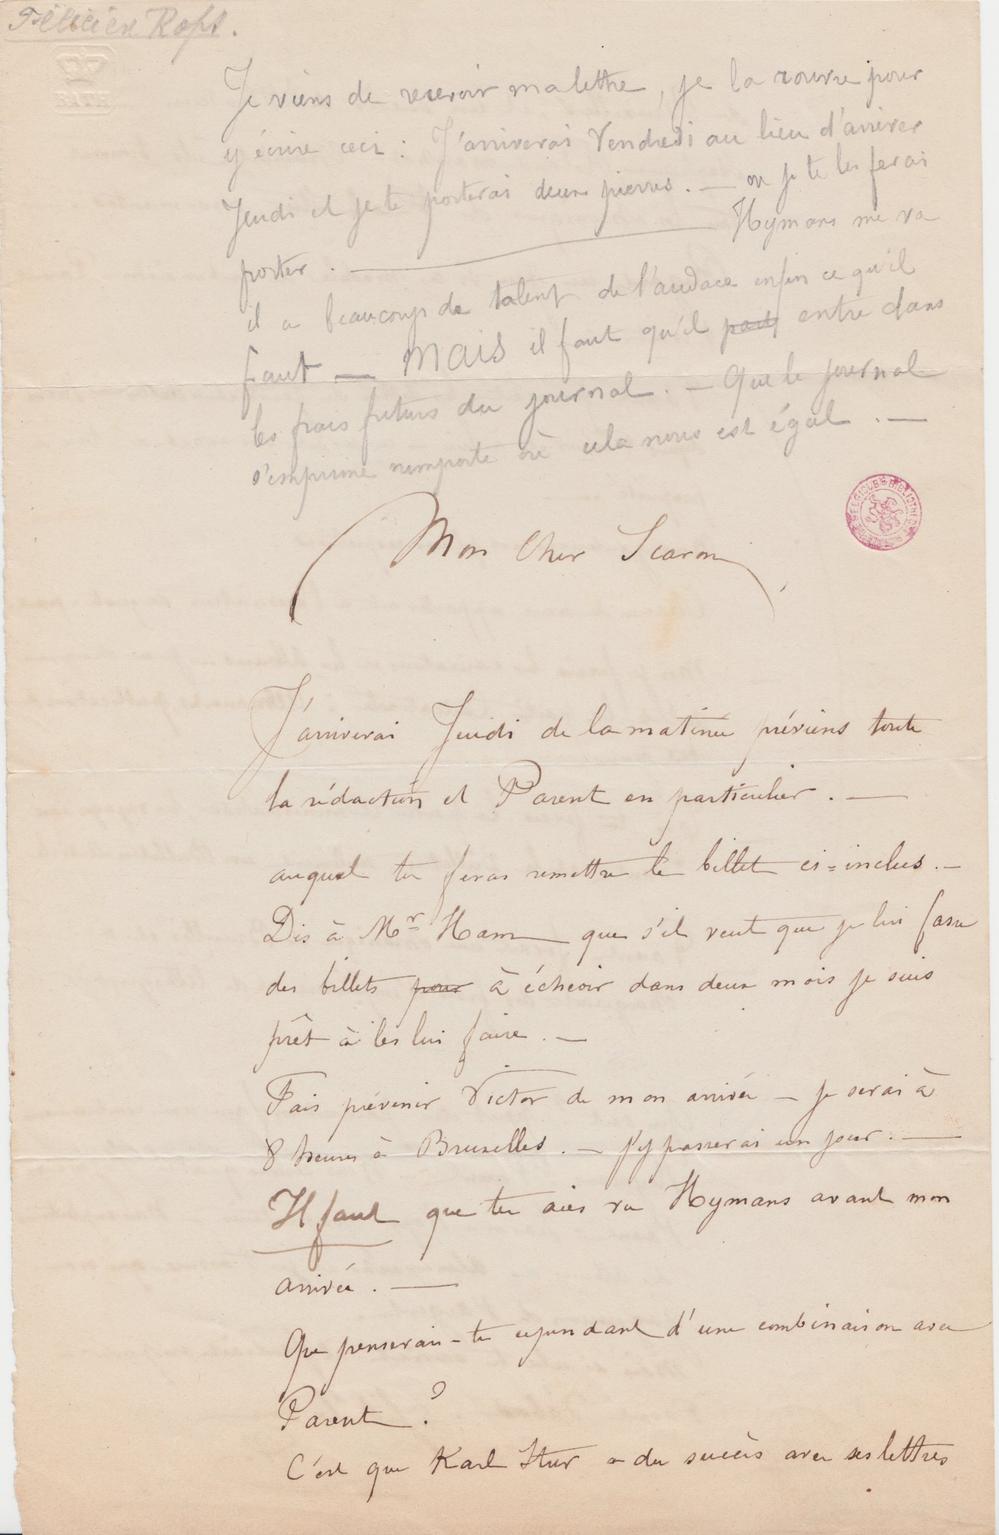 Félicien Rops.
BATH
Je viens de recevoir ma lettre, je la rouvre pour
y écrire ceci : J'arriverai Vendredi au lieu d'arriver
Jeudi et je te porterai deux pierres. — ou je te les ferai
porter. — Hymans me va
il a beaucoup de talent de l'audace enfin ce qu'il
faut — MAIS il faut qu'il entre dans
les frais futurs du journal. — Que le journal
s'imprime nemporte où cela nous est égal. —
Mon Cher Scaron
J'arriverai Jeudi de la matinée préviens toute
la rédaction et Parent en particulier. —
auquel tu feras remettre le billet ci=inclus. —
Dis à Mr Ham que s'il veut que je lui fasse
des billets pour à échéoir dans deux mois je suis
prêt à les lui faire. —
Fais prévenir Victor de mon arrivée — je serai à
8 heures à Bruxelles. — j'y passerai un jour. —
Il faut que tu aies vu Hymans avant mon
arrivée. —
Que penserais-tu cependant d'une combinaison avec
Parent ?
C'est que Karl Stur a du succès avec ses lettres